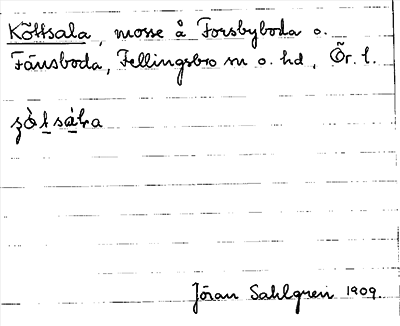 Köttsala, mosse å Forsbyboda o.
Fänsboda, Fellingsbro sn o. hd, Ör. l.
Jöran Sahlgren 1909.